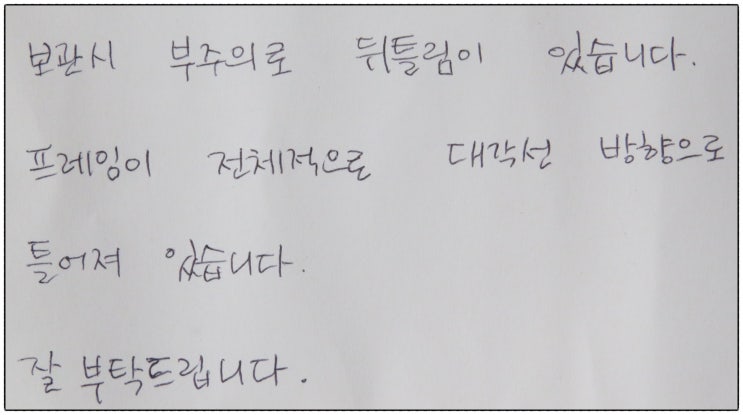 보관시 부주의로 뒤틀림이 있습니다.
프레임이 전체적으로 대각선 방향으로
틀어져 있습니다.
잘 부탁드립니다.